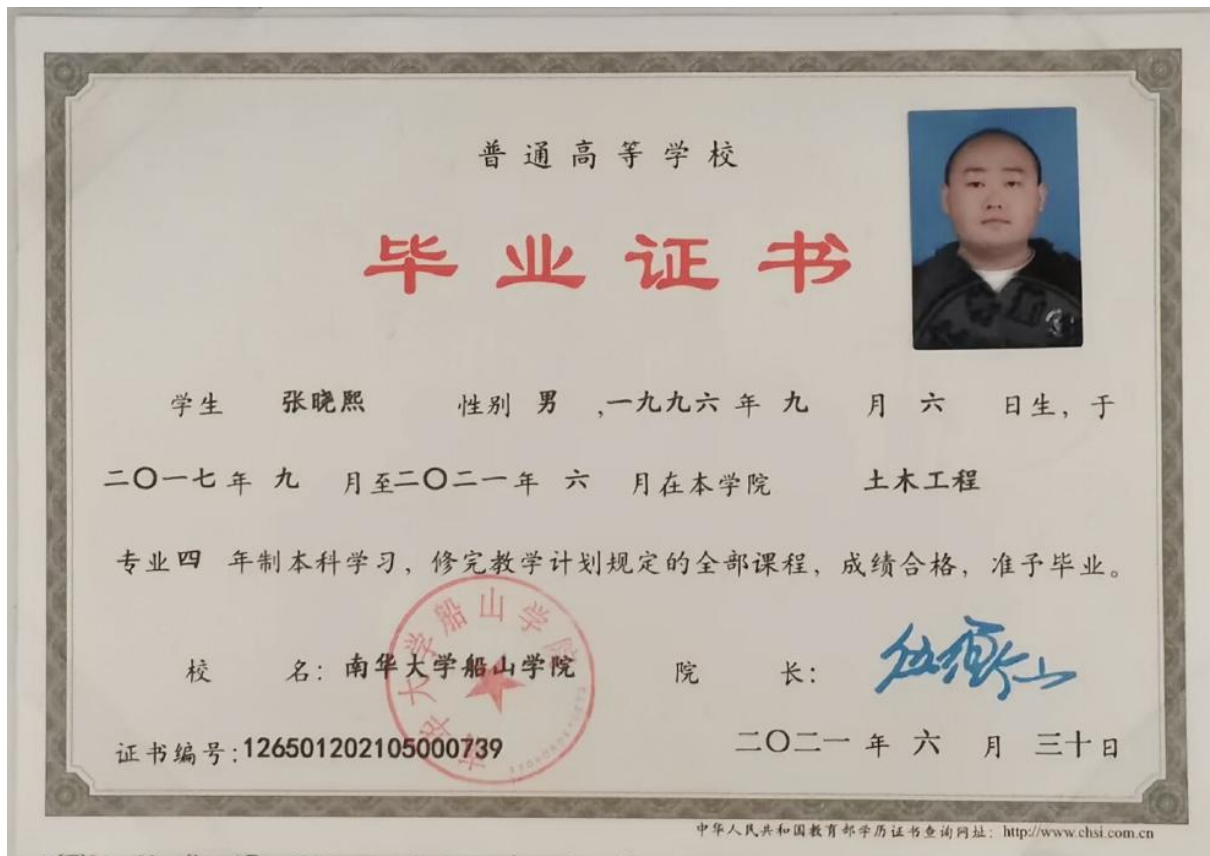 普通高等学校
毕业证书
学生 张晓熙 性别 男 ,一九九六 年 九 月 六 日生，于
二〇一七 年 九 月至二〇二一 年 六 月在本学院 土木工程
专业四 年制本科学习，修完教学计划规定的全部课程，成绩合格，准予毕业。
南华大学船山学院
校 名：南华大学船山学院 院 长：
证书编号：126501202105000739 二〇二一 年 六 月 三十日
中华人民共和国教育部学历证书查询网址：http://www.chsi.com.cn